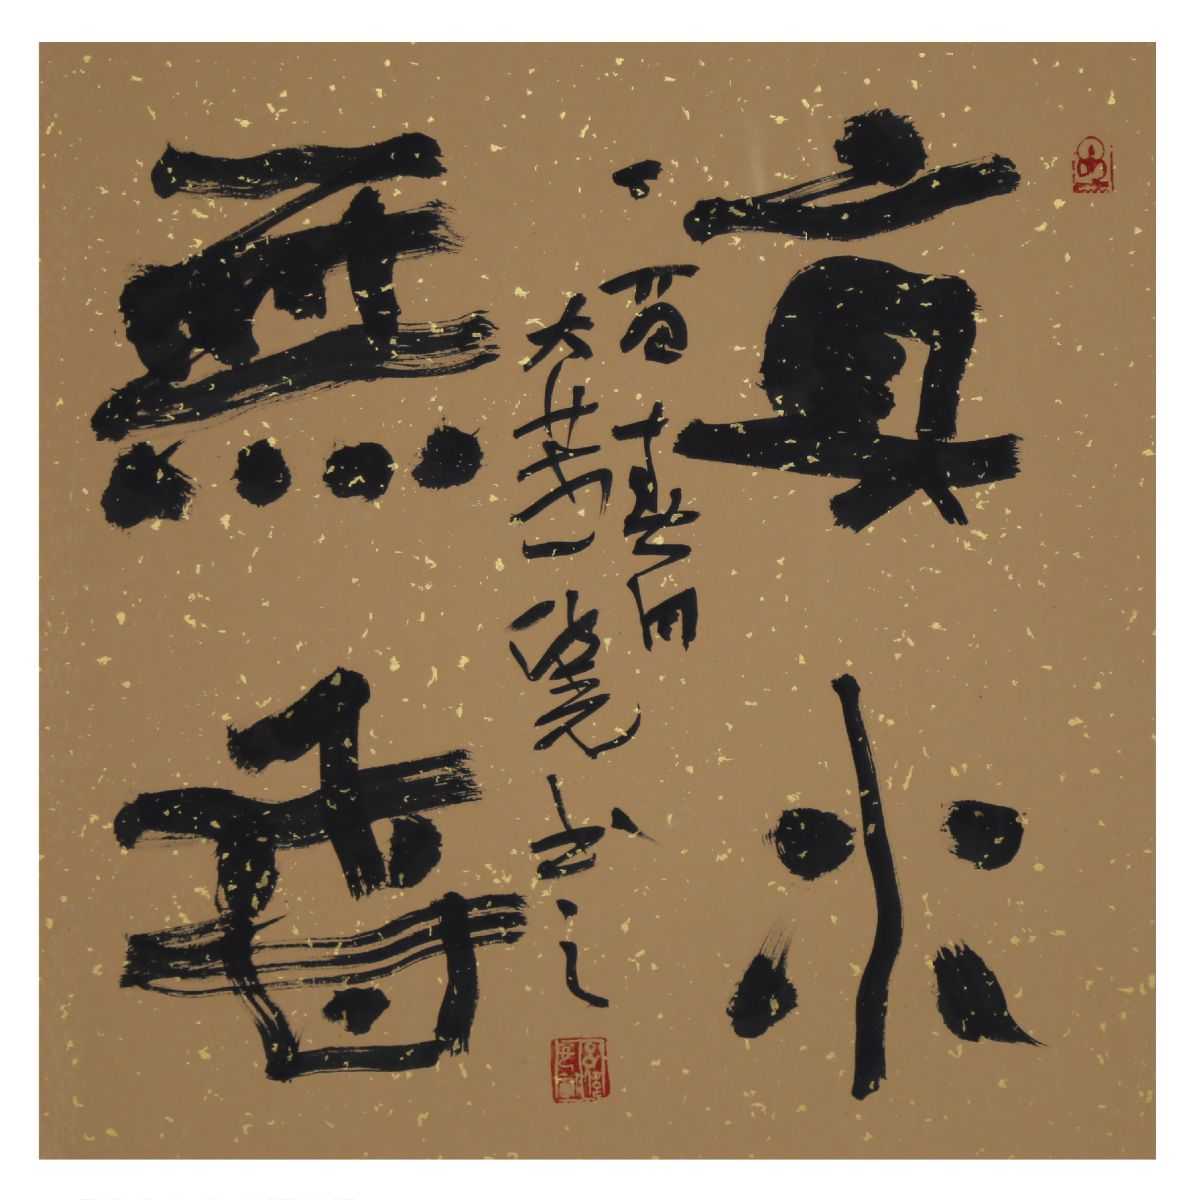 真水
無香
丁酉春
大
书之